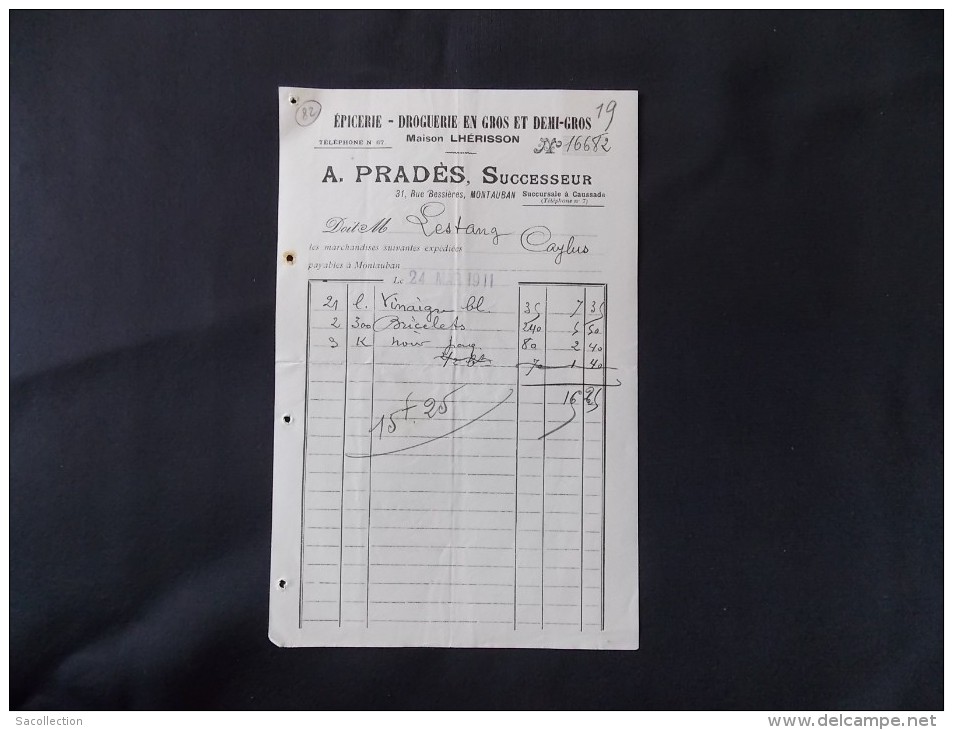 82
19
ÉPICERIE - DROGUERIE EN GROS ET DEMI-GROS
TÉLÉPHONE N° 67 Maison LHÉRISSON No 16682
A. PRADÈS, SUCCESSEUR
31, Rue Bessières, MONTAUBAN Succursale à Caussade
(Téléphone n° 7)
Doit M Lestang Caylus
les marchandises suivantes expédiées
payables à Montauban
Le 24 1911
21 l. Vinaigre bl. 35 7 35
2 300 Bricelets 240 5 50
3 K noir 80 2 40
70 1 40
16 25
15f. 25
Sacollection
www.delcampe.net